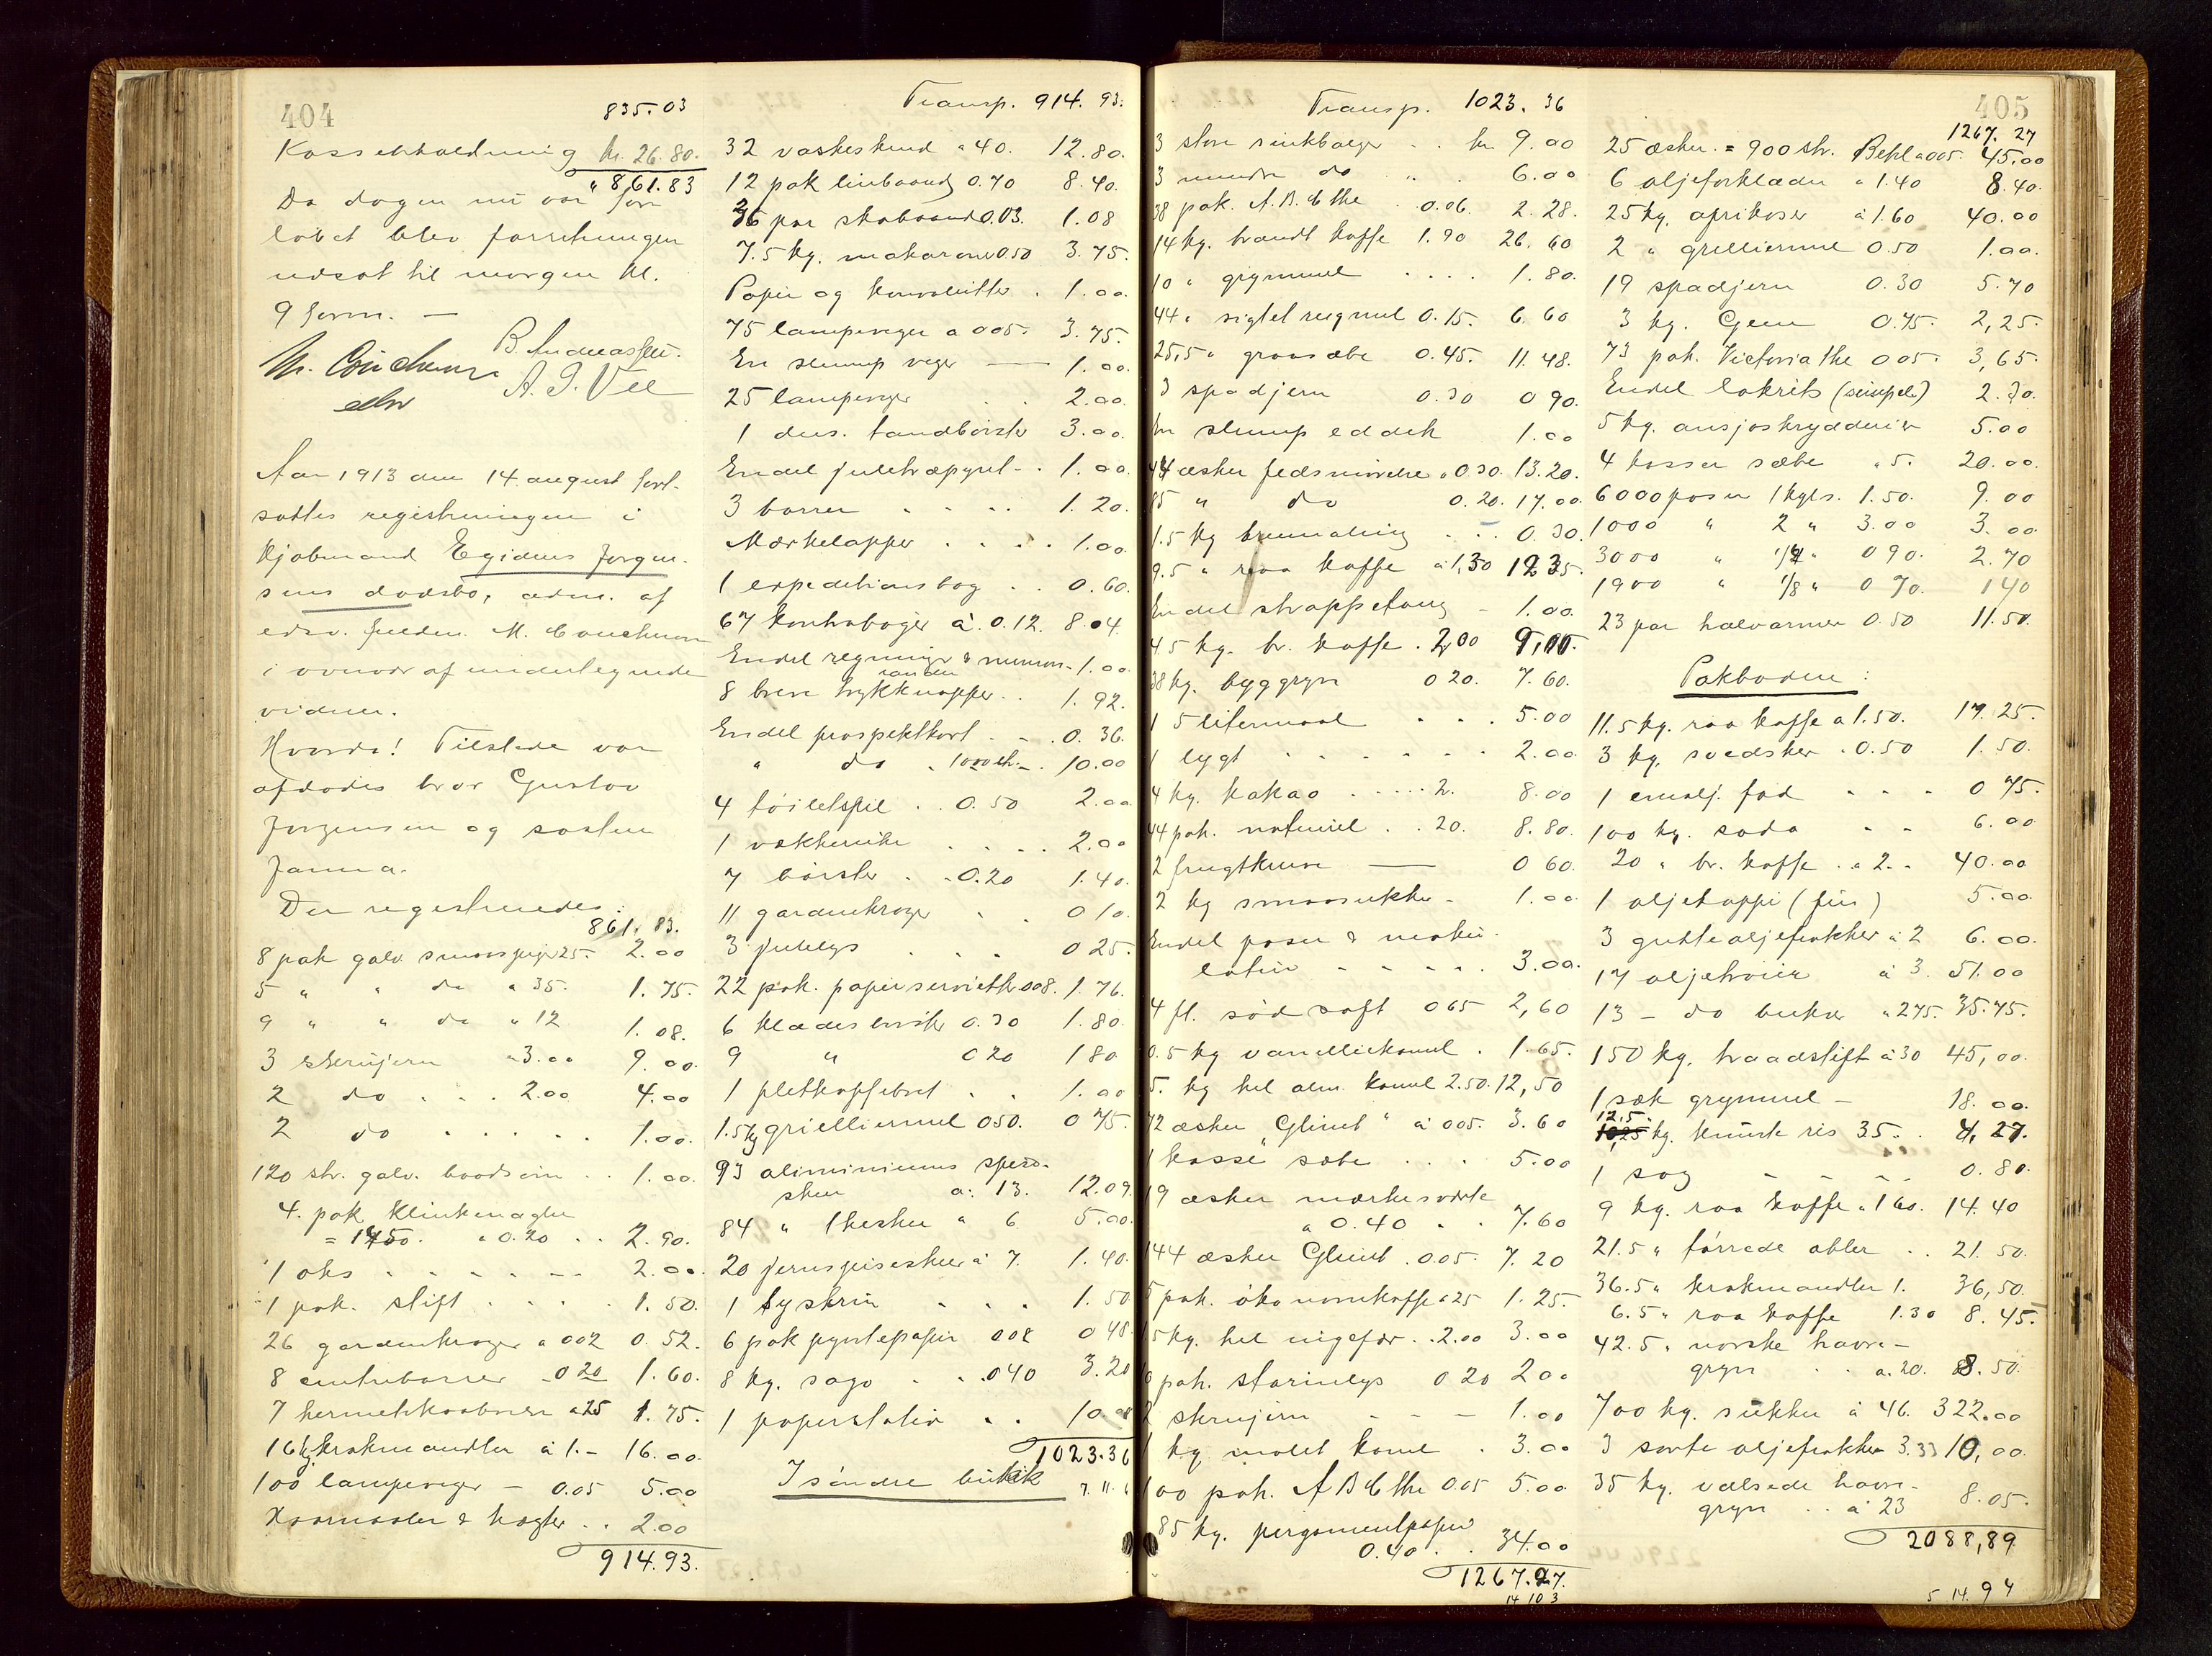 404
835.03
Kassebeholdning kr. 26.80.
" 861.83
Da dagen nu var for
løbet blev forretningen
udsat til morgen kl.
9 form. —
B. Andreassen.
A. J. Vee
Aar 1913 den 14. august fort-
sattes registreringen i
kjøbmand Egideus Jørgen-
sens dødsbo, adm. af
edsv. fuldm. M.
i overvær af undertegnede
vidner.
Hvorda! Tilstede var
afdødes bror Gustav
Jørgensen og søster
Janna.
Der registreredes:
861.83.
8 pak galv. smaaspiger 25- 2.00
5 " " do " 35. 1.75.
9 " " do " 12 1.08.
3 skruejern " 3.00 9.00.
2 do . . . 2.00 4.00
2 do . . . . . 1.00.
120 str. galv. baadsøm . . 1.00.
4. pak klinknagler
= 1450. a 0.20 . . 2.90.
1 øks . . . . . 2.00.
1 pak. stift . . . . 1.50.
26 gardinkroger a 002 0.52.
8 centruborrer - 0 20 1.60.
7 hermetikaabnere a 25 1.75.
16 kg krakmandler à 1.- 16.00.
100 lampeveger - 0.05 5.00
Haarnaaler & hægter . . 2.00
914.93.
Transp. 914.93.
32 vaskeskind a 40. 12.80.
12 pak linbaand 0.70 8.40.
36 par skobaand 0.03. 1.08
7.5 kg. makaroni 0.50 3.75.
Papir og konvolutter . 1.00.
75 lampeveger a 005- 3.75.
En slump veger — 1.00.
25 lampeveger . . 2.00.
1 dus. tandbørster 3.00.
Endel juletræpynt - . 1.00.
3 borrer . . . . 1.20.
Mærkelapper . . . . 1.00.
1 expeditionsbog . . 0.60.
67 kontrabøger à. 0.12. 8.04.
Endel regninger & memoran- 1.00.
randen
8 breve trykknapper . . 1.92.
Endel prospektkort . - . 0.36.
" do . 1000 stk - . 10.00
4 toiletspeil . . 0.50 2.00
1 vækkerur . . . . 2.00
7 børster . - 0.20 1.40.
11 gardinkroger . . 0 10.
3 julelys . . . 0 25.
22 pak. papirservietter 008. 1.76.
6 klædesbørster 0.30 1.80.
9 " 0 20 1 80
1 pletkaffebret . . 1.00
1.5 kg griellermel 050. 0 75.
93 aliminiums spise-
skeer a: 13. 12.09.
84 " theskeer a 6. 5.00.
20 jernspiseskeer à 7. 1.40.
1 syskrin . . . 1.50
6 pak pyntepapir 008 0 48.
8 kg. sago . . . 040 3.20
1 papirstativ . . 10.00
1023.36
I søndre butik
Transp. 1023.36
3 store sinkbaljer . . kr 9.00
3 mindre do . . 6.00
38 pak. A.B.C the . 0.06. 2.28.
14 kg. brændt kaffe 1.90 26.60
10 " grynmel . . . . 1.80.
44 " sigtet rugmel 0.15. 6.60
25,5 " grønsæbe 0.45. 11.48.
3 spadjern 0.30 0 90.
En slump eddik 1.00
44 æsker fedtsmørelse a 030. 13.20.
85 " do 0.20. 17.00.
1.5 kg brunmaling . . . 0.30.
9.5 " raa kaffe à 1,30 12 35.
Endel strappetøug - 1.00.
4.5 kg. br. kaffe . 2,00 9,00.
38 kg. byggryn 0 20. 7.60.
1 5 litermaal . . . 5.00
1 lygt . . . . . 2.00
4 kg. kakao . . . . 2. 8.00
44 pak. naturiel . . 20. 8.80.
2 frugtkurve — 0 60.
2 kg smaasukker - 1.00.
Endel poser & maku-
latur - - - - . 3.00.
4 fl. sød saft 065 2,60
0.5 kg vanillekanel . 1.65.
5. kg hel alm. kanel 2.50. 12,50
72 æsker "Glimt" à 005. 3.60
1 kasse sæbe . . . 5.00
19 æsker mærkesværte
a 0.40 . . 7.60
144 æsker Glimt . 005. 7.20
5 pak. økonomkaffe a 25 1.25.
1.5 kg. hel ingefær . . 2.00 3.00
10 pak. starinlys 0 20 2 00
2 skruejern - - - 1.00
1 kg malet kanel . 3.00
100 pak. A B C the 0.05 5.00
85 kg. pergamentpapir
0.40 . . 34.00
1267.27.
14 10 3
405
1267.27
25 æsker. = 900 str. Behl a 005. 45.00
6 oljeforklæder a 1.40 8.40.
25 kg. aprikoser à 1.60 40.00
2 " grelliermel 0.50 1.00.
19 spadjern 0.30 5.70
3 kg. Gem 0.75. 2,25.
73 pak. Victoria the 005. 3,65.
Endel lakrits (simpel) 2.30.
5 kg. ansjoskrydderier 5.00
4 kasser sæbe a 5. 20.00.
6000 poser 1 kgs. 1.50. 9.00
1000 " 2 " 3.00 3.00
3000 " 1/2 " 0 90. 2.70
1900 " 1/8 " 0 70. 1 40
23 par halvarmer 0.50 11.50.
Pakboden:
11.5 kg. raa kaffe a 1.50. 17.25.
3 kg. svedsker . 0.50 1.50.
1 emalj. fad - - - 0 75.
100 kg. soda - - 6.00
20 " br. kaffe . a 2. - 40.00
1 oljekappe (fin) 5.00.
3 gutteoljefrakker à 2 6.00.
17 oljetrøier à 3. 51.00
13 - do bukser a 275. 35.75.
150 kg. traadstift à 30 45,00.
1 sæk grynmel - 18.00.
12.5.
kg. knuste ris 35 . . 4,27.
1 sag - - - - 0.80.
9 kg. raa kaffe a 1 60. 14.40
21.5 " tørrede æbler . . 21.50.
36.5 " krakmandler 1. 36,50.
6.5 " raa kaffe 1.30 8.45.
42.5 " norske havre-
gryn . . a. 20. 8.50.
700 kg. sukker à 46. 322.00
3 sorte oljefrakker 3.33 10,00.
35 kg. valsede havre-
gryn . . à 23 8.05.
2088,89
5 14. 9 4